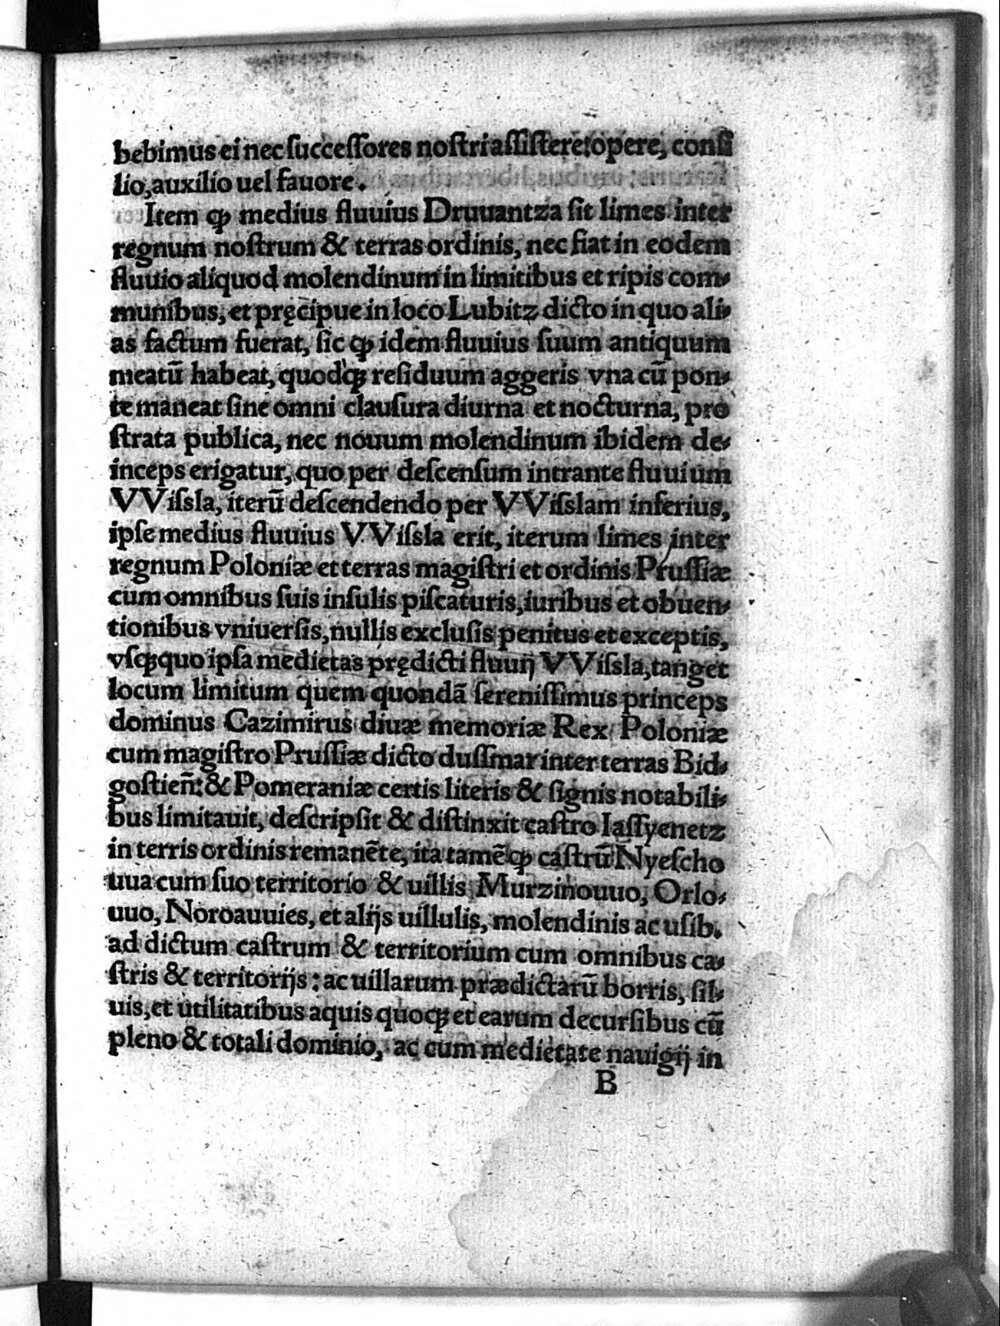 bebimus ei nec ſucceſſores noſtri aſſiſtere: opere, conſi
lio, auxilio uel fauore.
Item ꝙ medius fluuius Druuantza ſit limes inter
regnum noſtrum & terras ordinis, nec fiat in eodem
fluuio aliquod molendinum in limitibus et ripis com⸗
munibus, et pręcipue in loco Lubitz dicto in quo ali⸗
as factum fuerat, ſic ꝙ idem fluuius ſuum antiquum
meatū habeat, quodꝙ reſiduum aggeris vna cū pon⸗
te maneat ſine omni clauſura diurna et nocturna, pro
ſtrata publica, nec nouum molendinum ibidem de⸗
inceps erigatur, quo per deſcenſum intrante fluuium
VViſsla, iterū deſcendendo per VViſslam inferius,
ipſe medius fluuius VViſsla erit, iterum limes inter
regnum Poloniæ et terras magiſtri et ordinis Pruſſiæ
cum omnibus ſuis inſulis piſcaturis, iuribus et obuen⸗
tionibus vniuerſis, nullis excluſis penitus et exceptis,
vſꝙquo ipſa medietas prędicti fluuij VViſsla, tanget
locum limitum quem quondā ſereniſſimus princeps
dominus Cazimirus diuæ memoriæ Rex Poloniæ
cum magiſtro Pruſſiæ dicto duſſmar inter terras Bid⸗
goſtien̄: & Pomeraniæ certis literis & ſignis notabili⸗
bus limitauit, deſcripſit & diſtinxit caſtro Iaſſyenetz
in terris ordinis remanēte, ita tamē ꝙ caſtrū Nyeſcho
uua cum ſuo territorio & uillis Murzinouuo, Orlo⸗
uuo, Noroauuies, et alijs uillulis, molendinis ac uſib.
ad dictum caſtrum & territorium cum omnibus ca⸗
ſtris & territorijs: ac uillarum prædictarū borris, ſil⸗
uis, et utilitatibus aquis quoꝙ et earum decurſibus cū
pleno & totali dominio, ac cum medietate nauigij in
B